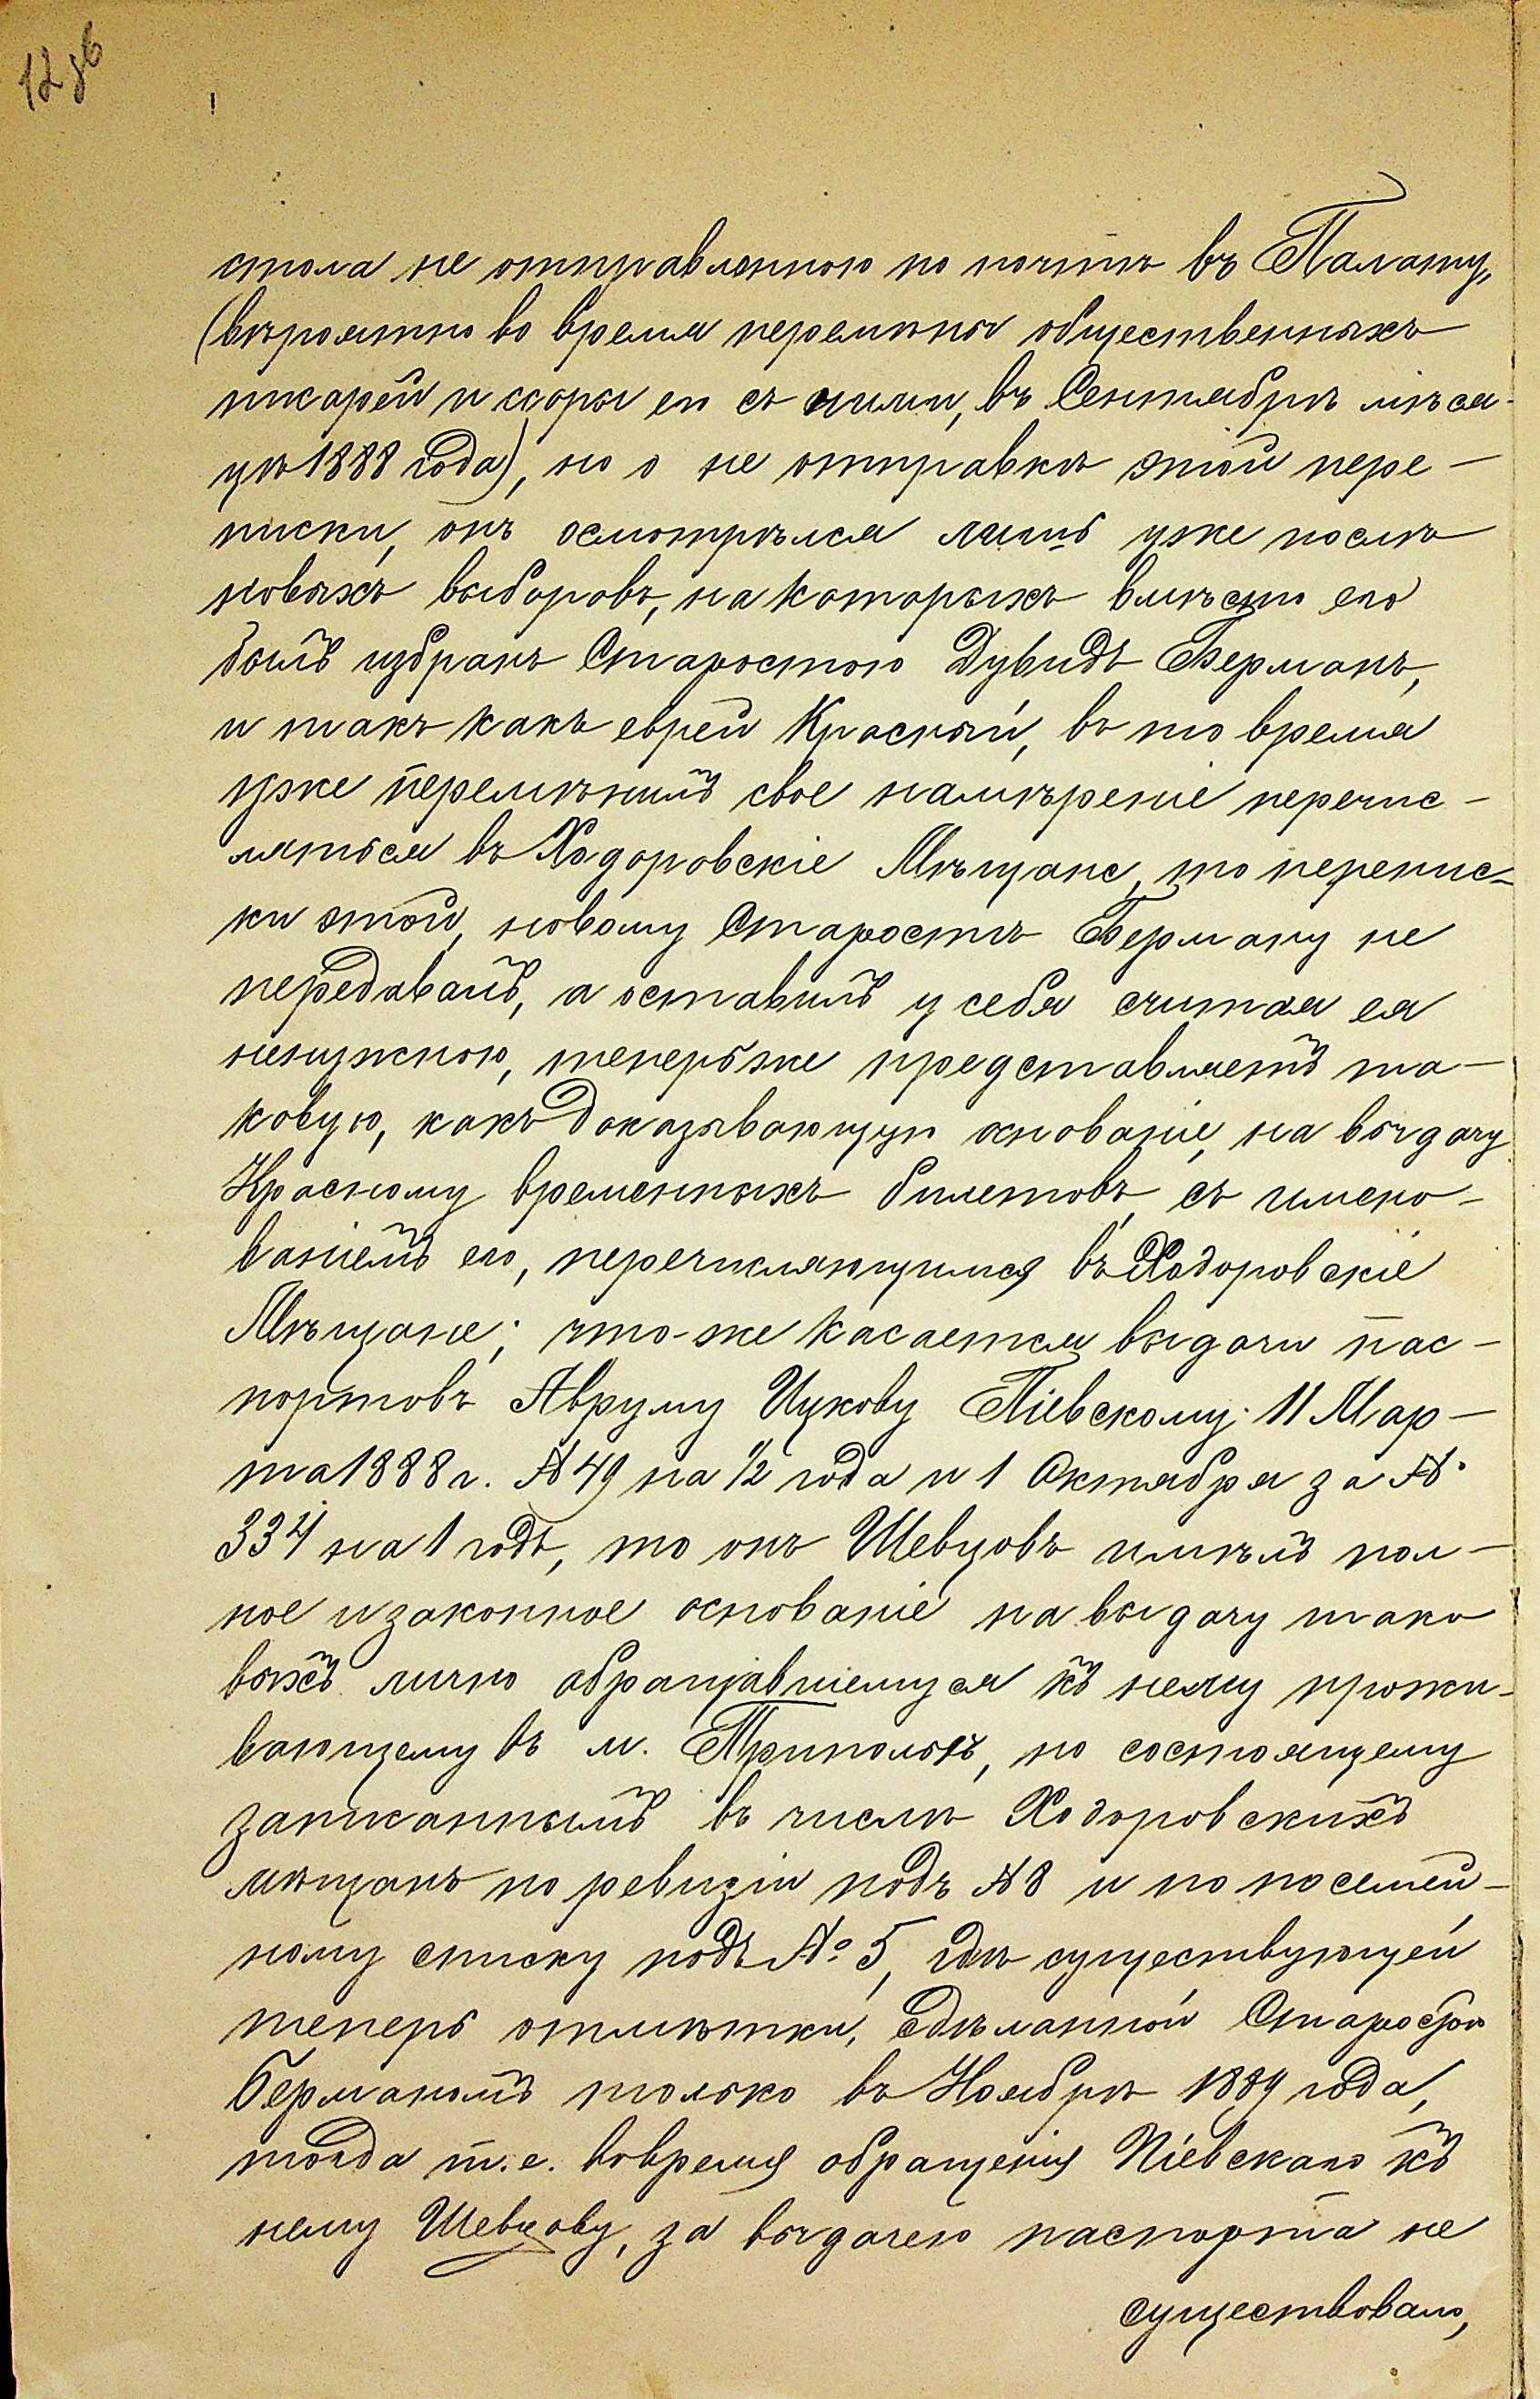 12 об
стола не отправленною по почтѣ въ Палату,
(вѣроятно во время перемѣны общественныхъ
писарей и ссоры его съ ними, въ Сентябрѣ мѣся-
цѣ 1888 года), но о не отправкѣ этой пере-
писки, онъ осмотрѣлся лишь уже послѣ
новыхъ выборовъ, на которыхъ вмѣсто его
былъ избранъ Старостою Дувидъ Берманъ,
и такъ какъ еврей Красный, въ то время
уже перемѣнилъ свое намѣреніе перечис-
ляться въ Ходоровскіе Мѣщане, то перепис-
ки этой, новому Старостѣ Берману не
передавалъ, а оставилъ у себя считая ея
ненужною, теперь же представляетъ та-
ковую, какъ доказывающую основаніе, на выдачу
Красному временныхъ билетовъ, съ имено-
ваніемъ его, перечисляющимся въ Ходоровскіе
Мѣщане; что-же касается выдачи пас-
портовъ Авруму Ицкову Піевскому: 11 Мар-
та 1888 г. № 49 на 1/2 года и 1 Октября за №
334 на 1 годъ, то онъ Шевцовъ имѣлъ пол-
ное и законное основаніе на выдачу тако
выхъ лично обращавшемуся къ нему прожи-
вающему въ м. Триполѣ, но состоящему
записаннымъ въ числѣ Ходоровскихъ
мѣщанъ по ревизіи подъ № 8 и по посемей-
ному списку подъ № 5, гдѣ существующей
теперь отмѣтки, сдѣланной Старостою
Берманомъ только въ Ноябрѣ 1889 года,
тогда т.е. вовремя обращенія Піевскаго къ
нему Шевцову, за выдачею паспорта не
существовало,